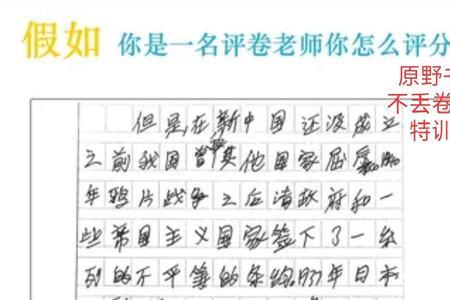 假如 你是一名评卷老师你怎么评分
原野
不丢卷
特训
但是,在新中国还没成立
之前我国曾被其他国家屈辱,1840
年鸦片战争之后清政府和一
些帝国主义国家签下了一条
列的不平等的条约.1937年日本